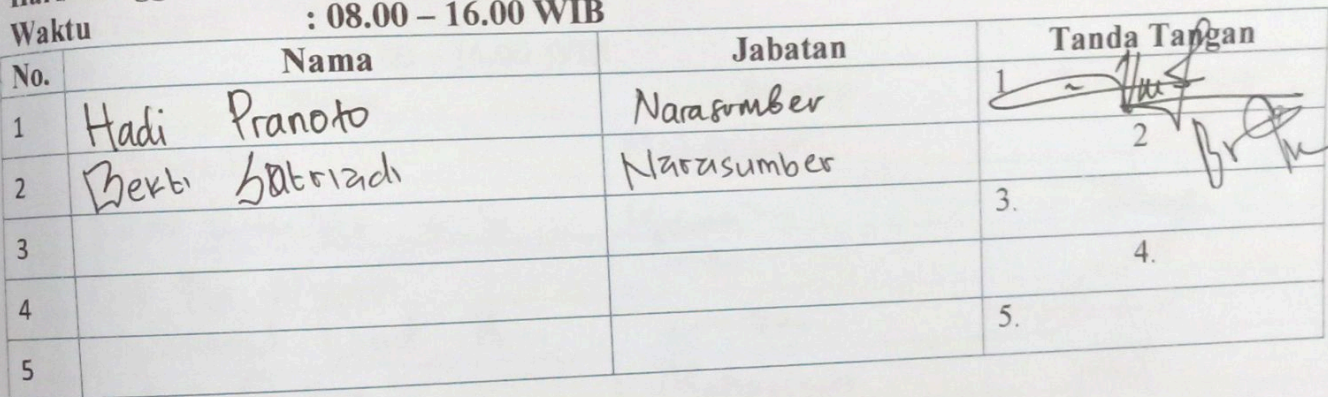 Waktu : 08.00 – 16.00 WIB
No. Nama Jabatan Tanda Tangan
1 Hadi Pranoto Narasumber 1
2 Bekti Satriadi Narasumber 2
3 3.
4 4.
5 5.